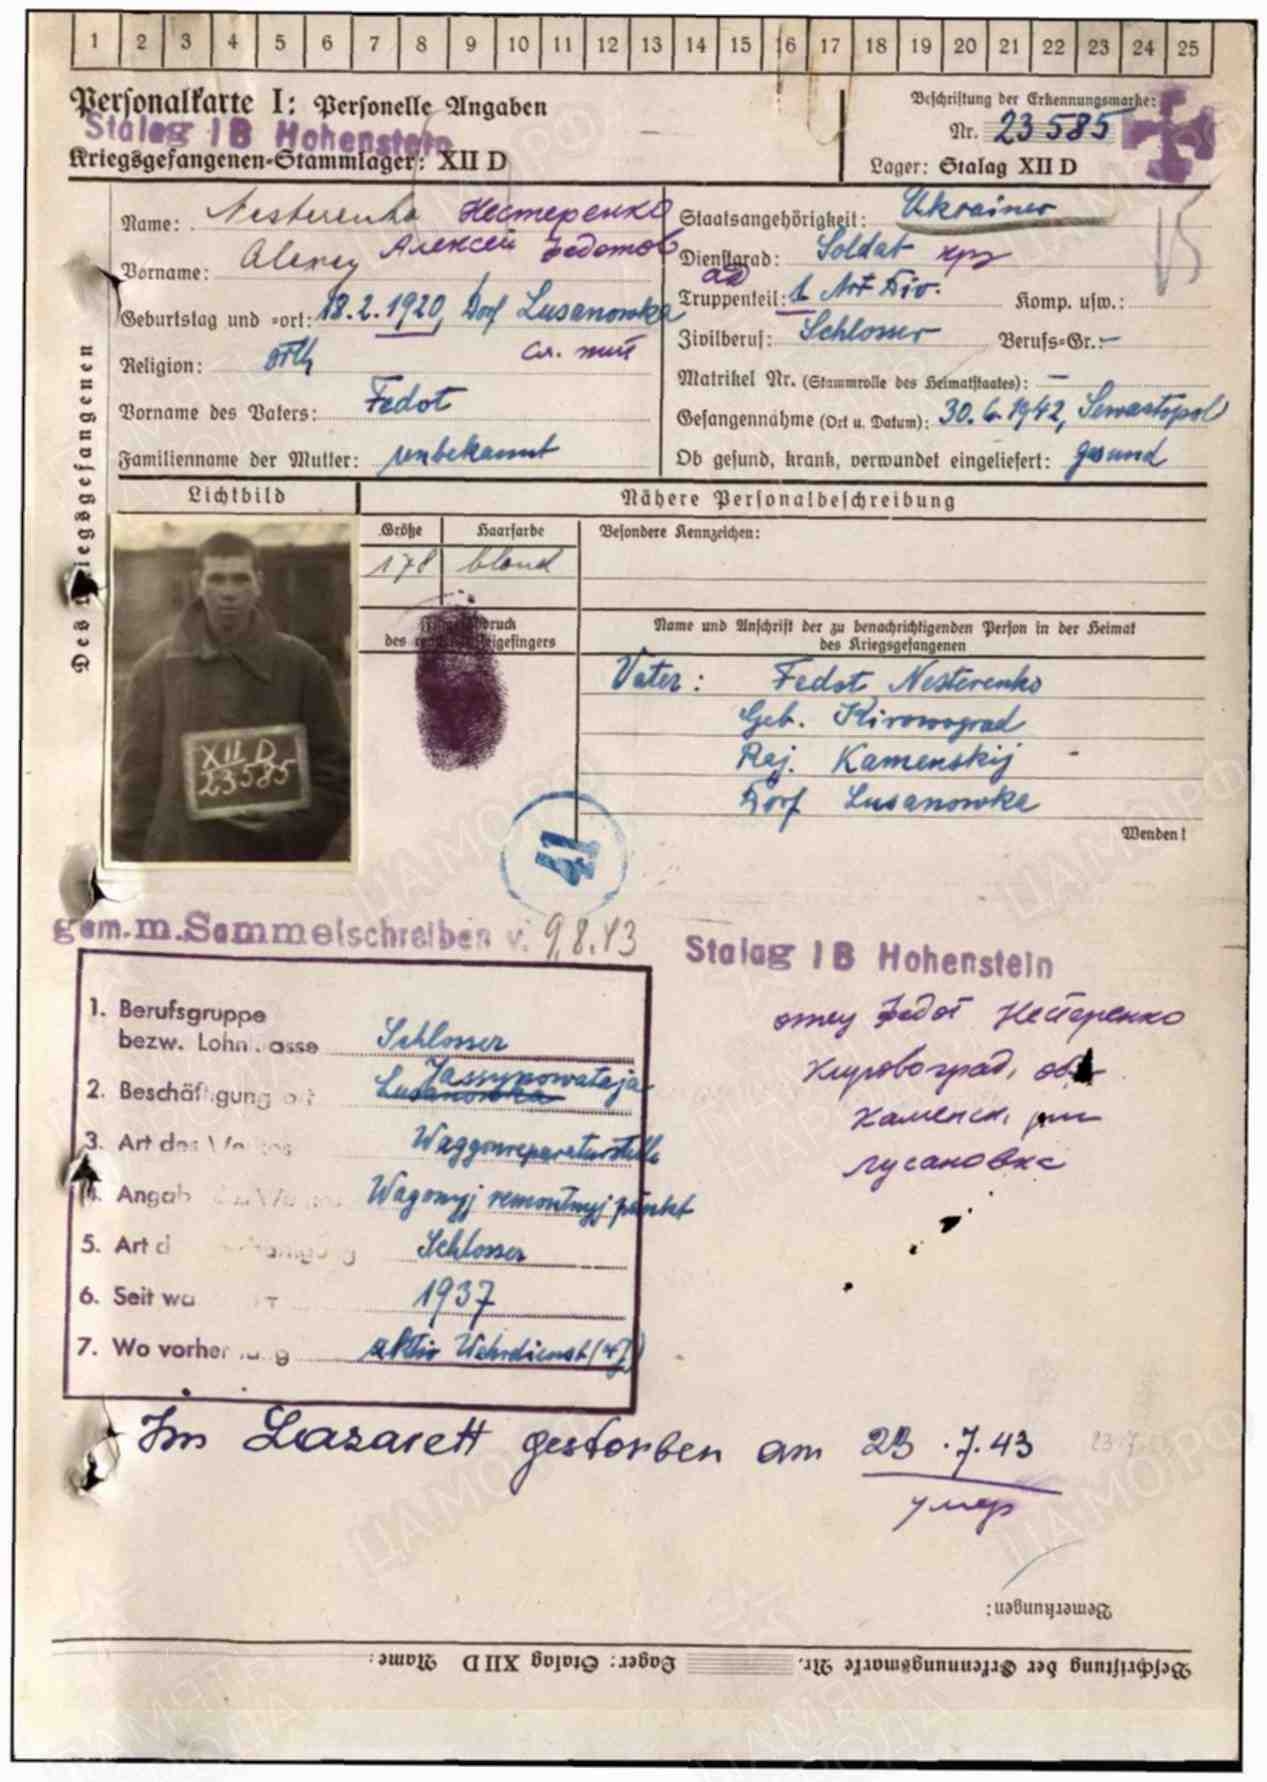 1 2 3 4 5 6 7 8 9 10 11 12 13 14 15 16 17 18 19 20 21 22 23 24 25
Personalkarte I: Personelle Angaben
Stalag I B Hohenstein
Kriegsgefangenen-Stammlager: XII D
Beschriftung der Erkennungsmarke:
Nr. 23585
Lager: Stalag XII D
Des Kriegsgefangenen
Name: Nesterenko Нестеренко
Vorname: Alexey Алексей Федотов
Geburtstag und -ort: 18.2.1920, Dorf Lusanowka
Religion: orth
Vorname des Vaters: Fedot
Familienname der Mutter: unbekannt
Staatsangehörigkeit: Ukrainer
Dienstgrad: Soldat кр
Truppenteil: 1 Art Div. Komp. usw.:
Zivilberuf: Schlosser Berufs-Gr.: -
Matrikel Nr. (Stammrolle des Heimatstaates): -
Gefangennahme (Ort u. Datum): 30.6.1942, Sewastopol
Ob gesund, krank, verwundet eingeliefert: gesund
Lichtbild
Nähere Personalbeschreibung
Größe Haarfarbe Besondere Kennzeichen:
178 blond
XII D
23585
Name und Anschrift der zu benachrichtigenden Person in der Heimat
des Kriegsgefangenen
Vater: Fedot Nesterenko
Geb. Kirowograd
Raj. Kamenskij
Dorf Lusanowka
Wenden!
41
gem. m. Sammelschreiben v. 9.8.43
Stalag I B Hohenstein
1. Berufsgruppe
bezw. Lohnklasse Schlosser
2. Beschäftigungsort Lusanowka Jassynowataja
3. Art des Waggonreparaturstelle
4. Angab Wagonyj remontnyj punkt
5. Art d Schlosser
6. Seit wa 1937
7. Wo vorher aktiv Wehrdienst (4J)
отец Федот Нестеренко
Кировоград, обл
Каменск, рн
Лусановка
Im Lazarett gestorben am 23.7.43
умер
Bemerkungen:
Beschriftung der Erkennungsmarke Nr. Lager: Stalag XII D Name: